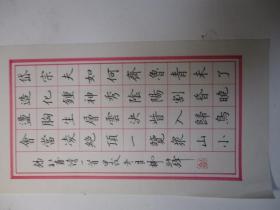 岱宗夫如何齊魯青未了
造化鍾神秀陰陽割昏曉
盪胸生層雲決眥入歸鳥
會當凌絕頂一覽衆山小
詩一首